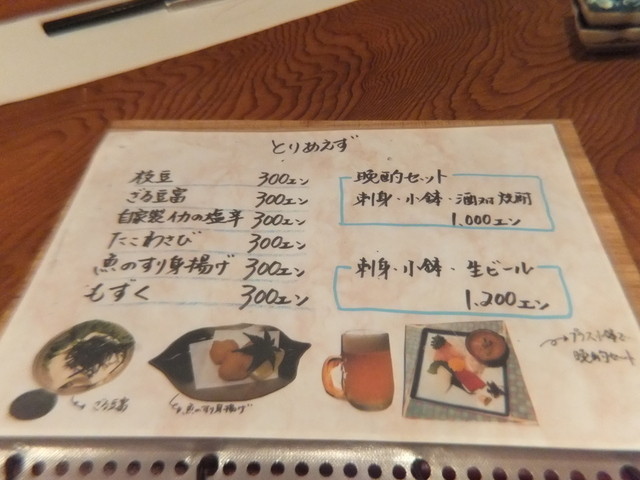 とりあえず
枝豆 300エン
ざる豆富 300エン
自家製イカの塩辛 300エン
たこわさび 300エン
魚のすり身揚げ 300エン
もずく 300エン
晩酌セット
刺身・小鉢・酒又は焼酎
1.000エン
刺身・小鉢・生ビール
1.200エン
ざる豆富
魚のすり身揚げ
プラス小鉢で
晩酌セット